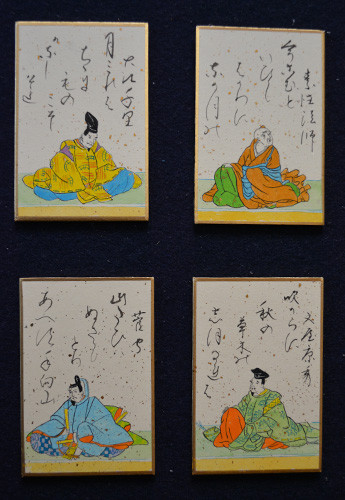 素性法師
今こむと
いひし
はかりに
なか月の
大江千里
月みれは
ちゝに
もの
かなしこそ
文屋康秀
吹からに
秋の
草木の
しをるれは
菅家
ぬさも
とり
あへす手向山